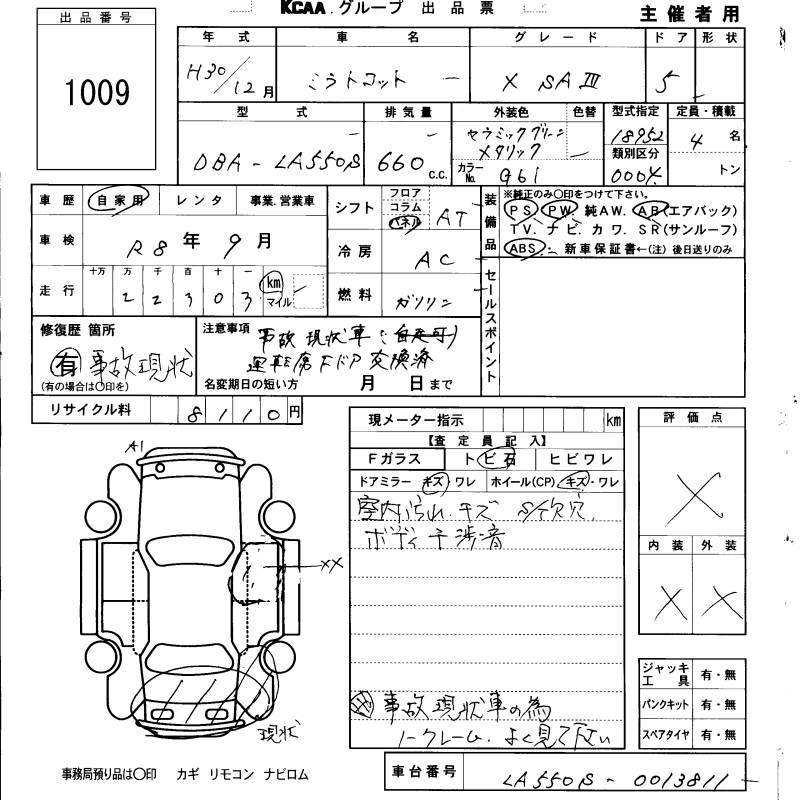 KCAA.グループ 出品票
主催者用
出品番号
1009
年式 車名 グレード ドア 形状
H30/12月 ミラトコット X SAⅢ 5
型式 排気量 外装色 色替 型式指定 定員・積載
DBA-LA550S 660 c.c. セラミックグリーンメタリック 18952 4名
カラーNo. G61 類別区分 0004 トン
車歴 自家用 レンタ 事業.営業車
シフト フロア コラム パネル AT
装備品 ※純正のみ〇印をつけて下さい。
PS PW 純AW. AB(エアバック)
TV. ナビ. カワ. SR(サンルーフ)
ABS 新車保証書←(注)後日送りのみ
車検 R8年9月
冷房 AC
走行 十万 万 千 百 十 一 km マイル
22303
燃料 ガソリン
セールスポイント
修復歴 箇所
有 事故現状
(有の場合は〇印を)
注意事項 事故 現状車
運転席Fドア交換済
名変期日の短い方 月 日まで
リサイクル料 8110円
現メーター指示 km
評価点
X
【査定員記入】
Fガラス トビ石 ヒビワレ
ドアミラー キズ・ワレ ホイール(CP) キズ・ワレ
室内汚れ.キズ S/欠穴.
ボディ干渉音
内装 外装
X X
A1
XX
現状
事故現状車の為
ノークレーム. よく見て下さい
ジャッキ工具 有・無
パンクキット 有・無
スペアタイヤ 有・無
事務局預り品は〇印 カギ リモコン ナビロム
車台番号 LA550S-0013811